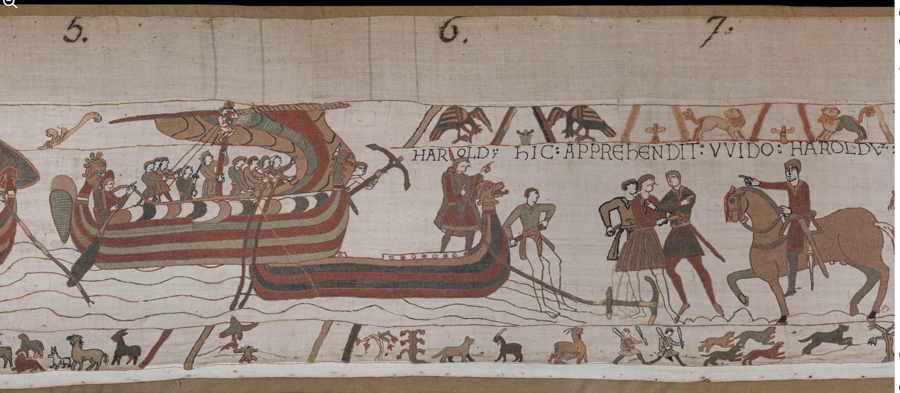 5. 6. 7.
HAROLD⁹ hIC : APPREhENDIT : VVIDO : HAROLDV̅ :